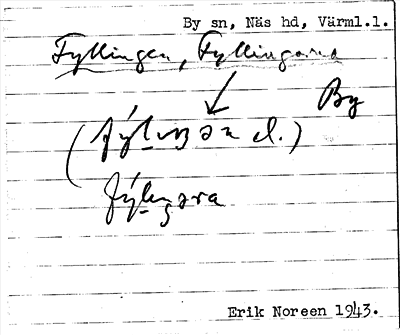 By sn, Näs hd, Värml.l.
Fyllingen, Fyllingarna
By
el.)
Erik Noreen 1943.